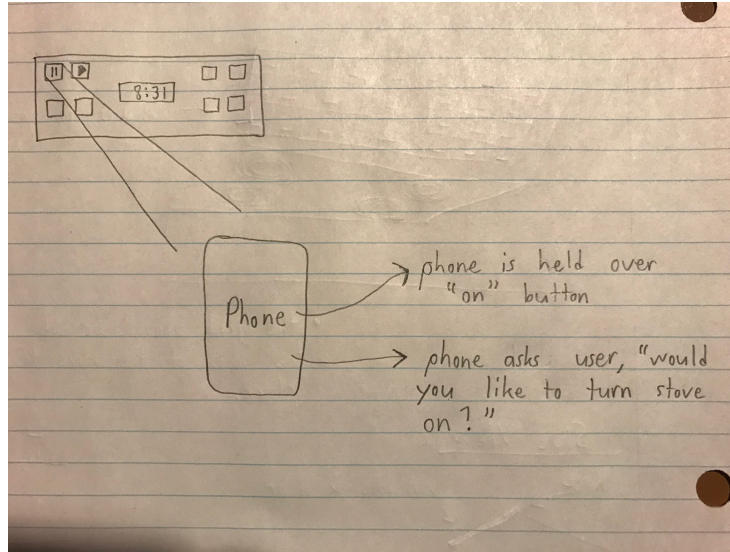 8:31
Phone
phone is held over
"on" button
phone asks user, "would
you like to turn stove
on?"